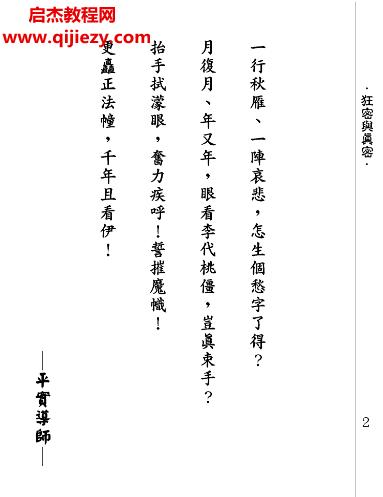 启杰教程网
www.qijiezy.com
．狂密與真密．
一行秋雁、一陣哀悲，怎生個愁字了得？
月復月、年又年，眼看李代桃僵，豈真束手？
抬手拭濛眼，奮力疾呼！誓摧魔幟！
更矗正法幢，千年且看伊！
—平實導師—
2